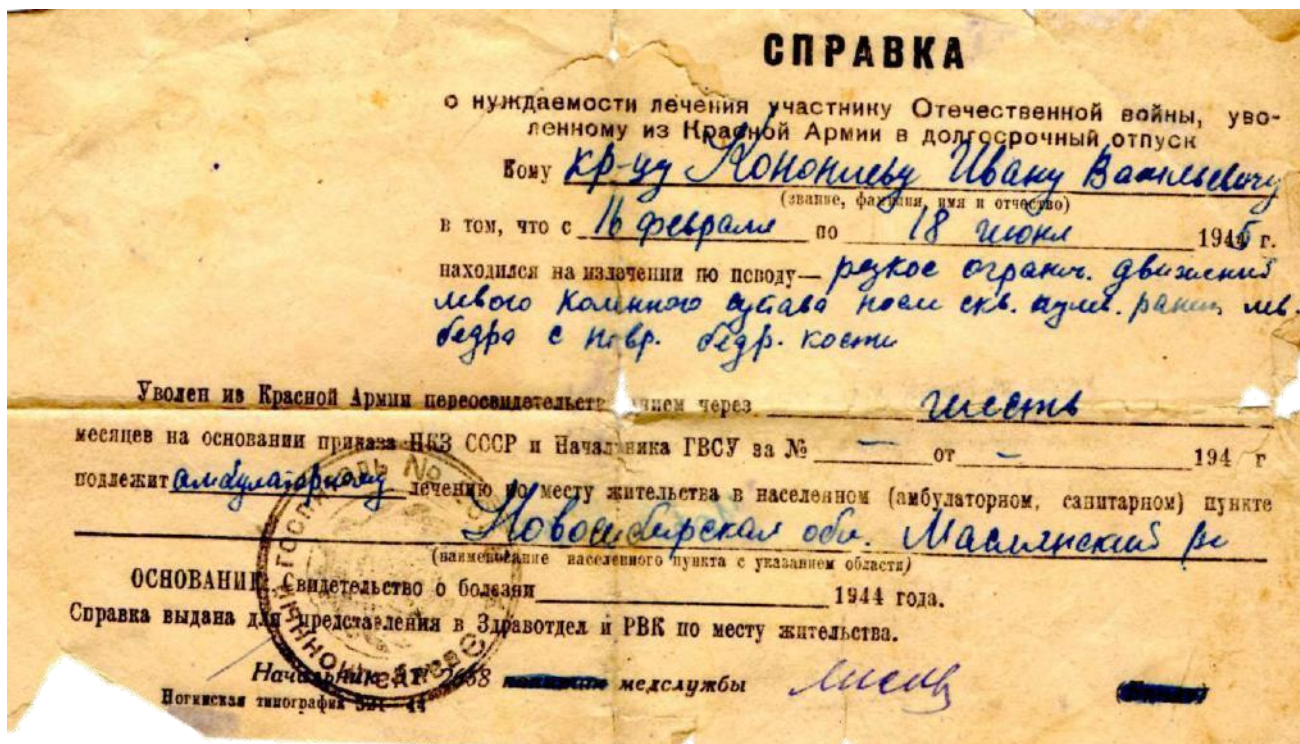 СПРАВКА
о нуждаемости лечения участнику Отечественной войны, уво-
ленному из Красной Армии в долгосрочный отпуск
Кому кр-цу Ивану Васильевичу
(звание, фамилия, имя и отчество)
в том, что с 16 февраля по 18 июня 1945 г.
находился на излечении по поводу— резкое огранич. движений
левого коленного сустава после скв. пулев. ранен. лев.
бедра с повр. бедр. кости
Уволен из Красной Армии переосвидетельств нием через шесть
месяцев на основании приказа НКЗ СССР и Начальника ГВСУ за № — от — 194 г
подлежит амбулаторному лечению по месту жительства в населенном (амбулаторном, санитарном) пункте
Новосибирская обл. Маслянский
(наименование населенного пункта с указанием области)
ОСНОВАНИЕ: Свидетельство о болезни 1944 года.
Справка выдана для представления в Здравотдел и РВК по месту жительства.
Начальник ЭГ 2658 медслужбы
Ногинская типография 44
ГОСПИТАЛЬ №